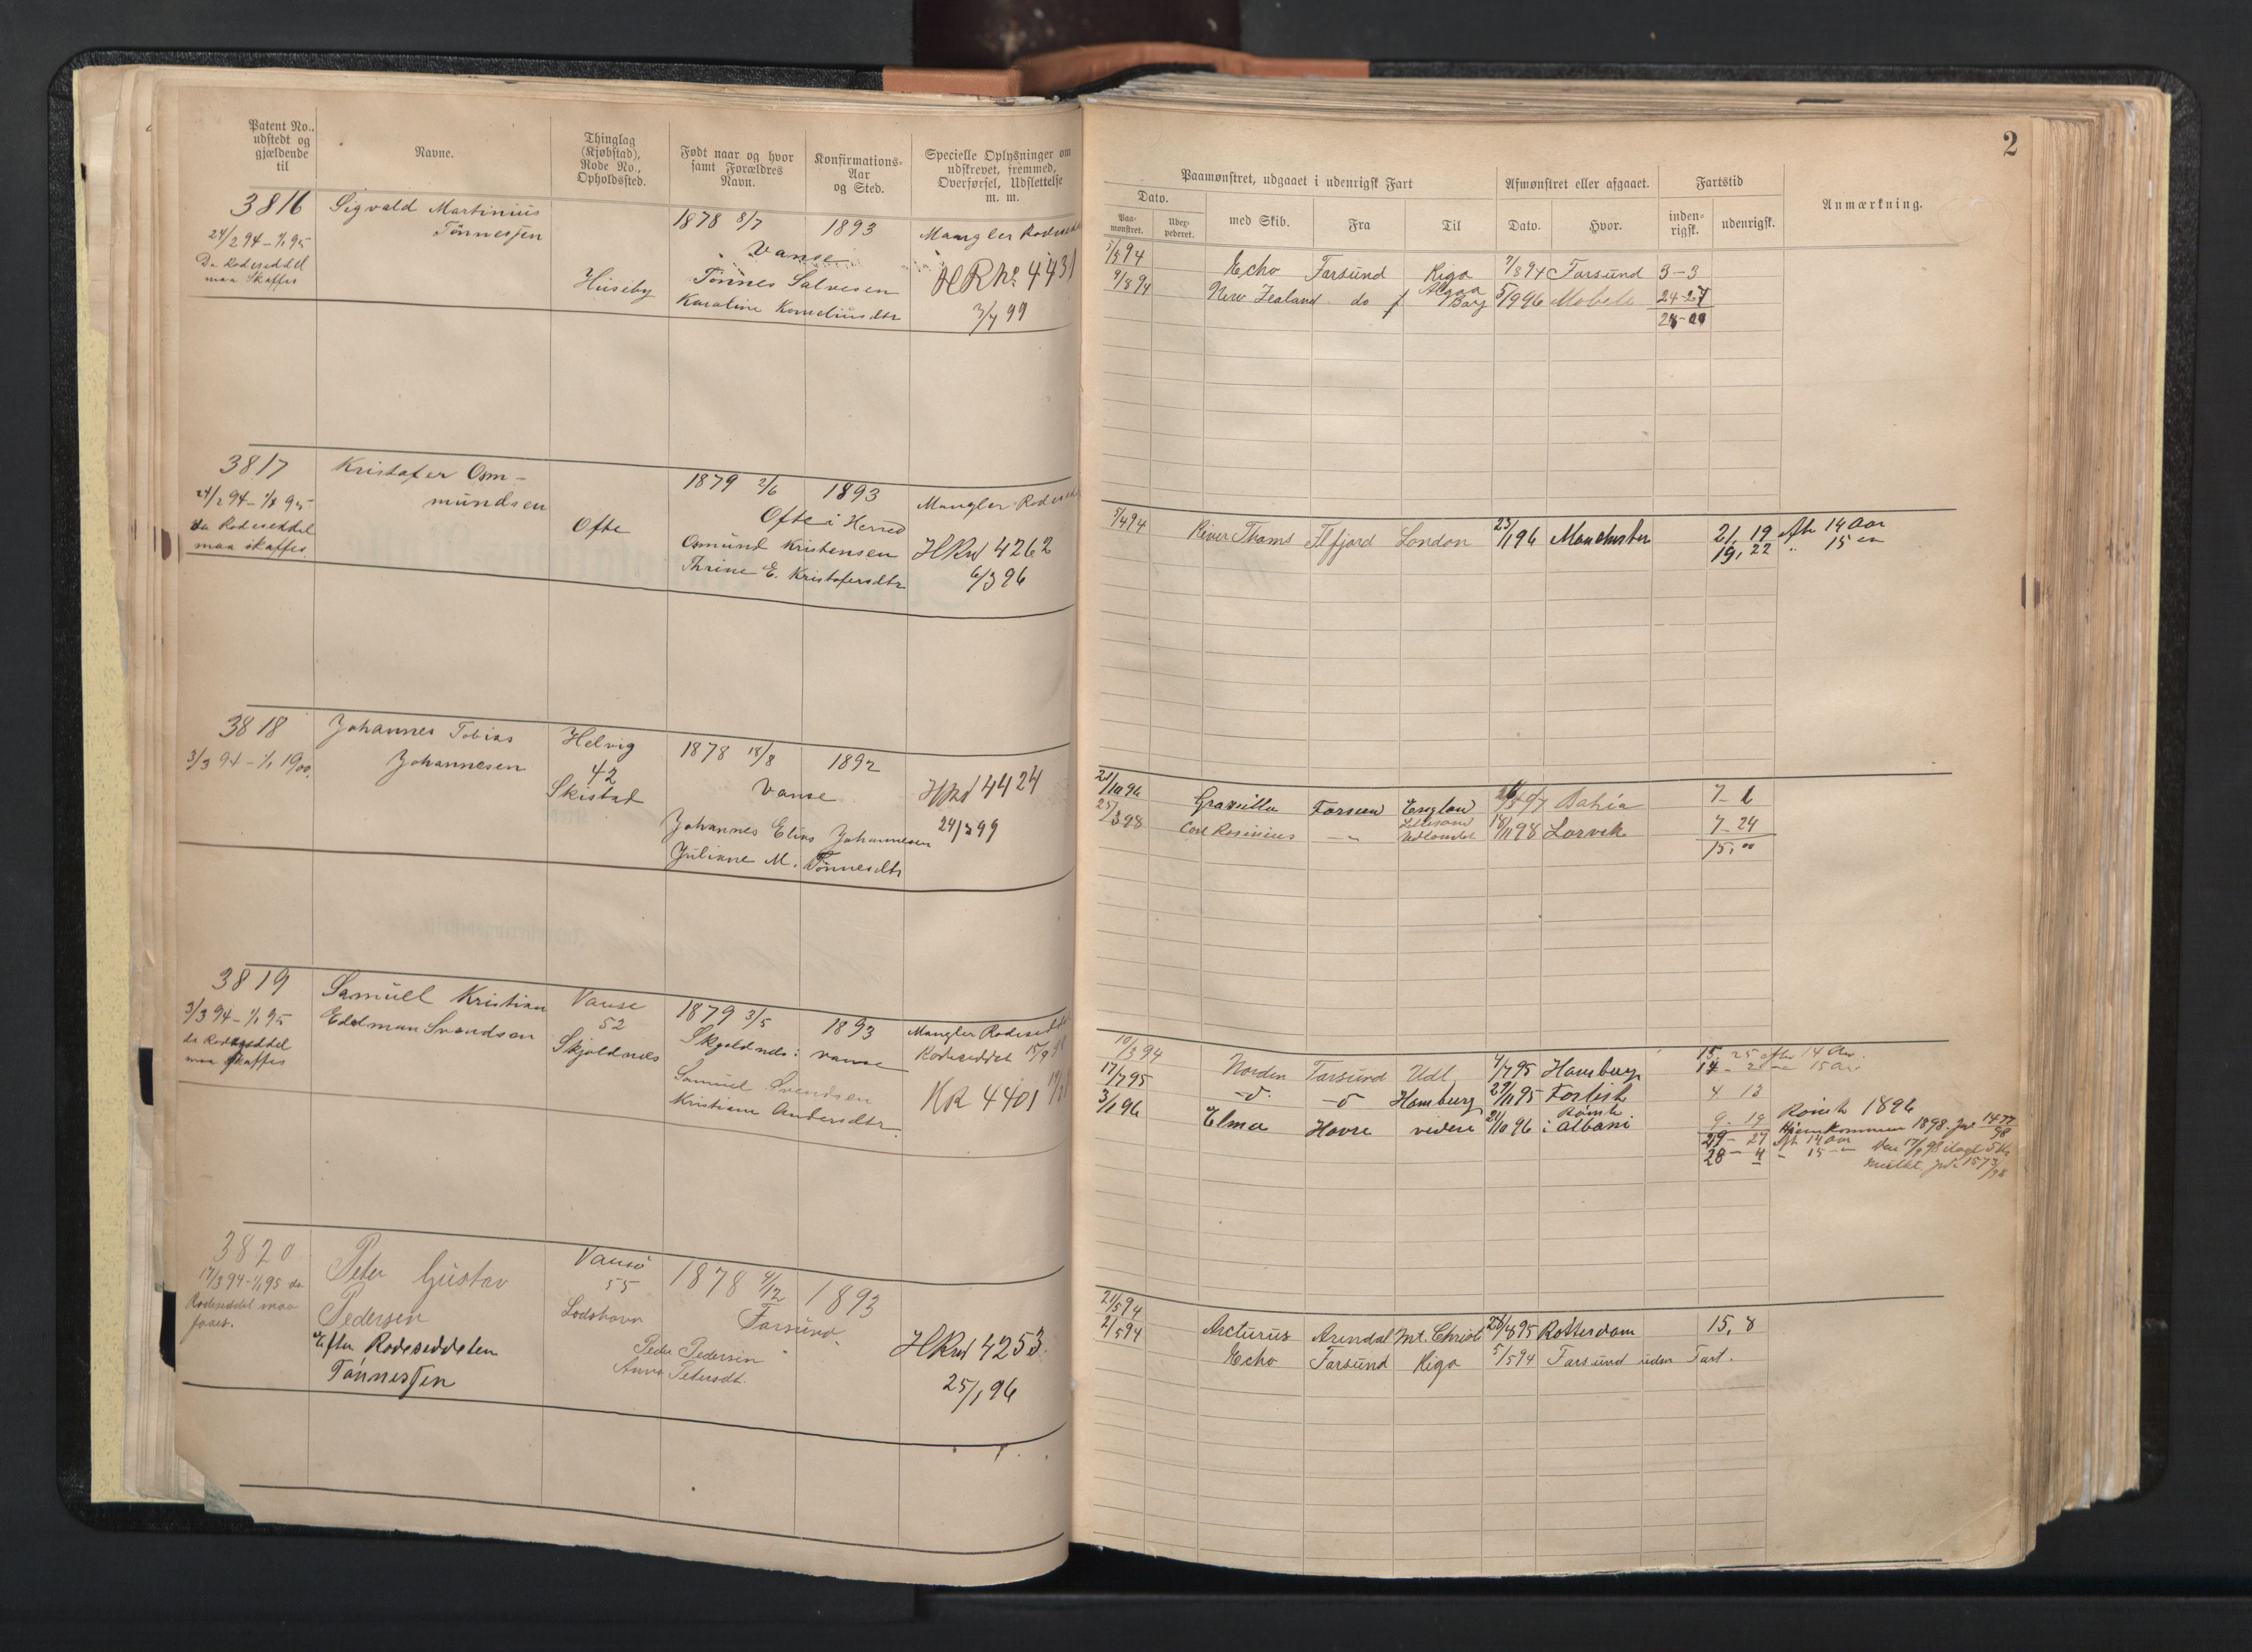 Patent No., udstedt og gjældende til
Navne.
Thinglag (Kjøbstad), Rode No., Opholdssted.
Født naar og hvor samt Forældres Navn.
Konfirmations-Aar og Sted.
Specielle Oplysninger om udskrevet, fremmed, Overførsel, Udslettelse m. m.
3816
24/2 94 - 1/1 95
Da Rodeseddel
maa skaffes
Sigvald Martinius
Tönnesjen
Huseby
1878 8/7
1893
Vanse
Tönnes Salvesen
Karoline Korneliusdtr
Mangler Rodeseddel
HR No 4431
3/4 99
3817
24/2 94 - 1/1 95
da Rodeseddel
maa skaffes
Kristofer Osm-
mundsen
Ofte
1879 2/6
1893
Ofte i Herred
Osmund Kristensen
Thrine E. Kristofersdtr
Mangler Rodeseddel
HRul 4262
6/3 96
3818
3/3 94 - 1/1 1900.
Johannes Tobias
Johannesen
Helvig
42
Skistad
1878 18/8
1892
Vanse
Johannes Elias Johannesen
Juliane M. Tönnesdtr
HRul 4424
24/3 99
3819
3/3 94 - 1/1 95
da Rodeseddel
maa skaffes
Samuel Kristian
Edelman Svendsen
Vanse
52
Skjoldnes
1879 3/5
1893
Skjoldnes i Vanse
Samuel Svendsen
Kristiane Andersdtr.
Mangler Rodeseddel
Rodeseddel 15/9 98
HR 4401
3820
17/3 94 - 1/1 95 da
Rodeseddel maa
faaes.
Peter Gustav
Pedersen
Efter Rodeseddelen
Tönnesjen
Vanse
55
Lodshavn
1878 4/12
1893
Farsund
Peder Pedersen
Anna Petersdt.
HRul 4253
25/1 96
2
Paamønstret, udgaaet i udenrigsk Fart
Afmønstret eller afgaaet.
Fartstid
Dato.
Paa-mønstret.
med Skib.
Fra
Til
Dato.
Hvor.
inden-rigsk.
udenrigsk.
Anmærkning.
5/5 94 Echo Farsund Riga 7/8 94 Farsund 3-3
9/8 94 New Zealand do Algoa Bay 5/9 96 Mobile 24-27
28-00
5/4 94 River Thams Flfjord London 23/1 96 Manchester 21, 19 efter 14 Aar
19, 22 " 15 "
21/10 96 Gravilla Farsund England Bahia 7-6
25/3 98 Carl Rosinius - " - Lillesand Udlandet 18/11 98 Larvik 7-24
15, 00
10/3 94 Norden Farsund Udl 4/7 95 Hamburg 15. 25 efter 14 Aar.
14 - 2 - 15 Aar
17/7 95 -o- -o- Hamburg 29/11 95 Farlist 4 13
3/1 96 Elma Havre videre 21/10 96 Römt i Albani 9 - 19 Römt 1896
Hjemkommen 1898. Jnl 1477/98
29 - 27 efter 14 Aar
28 - 4 " 15 -
21/5 94
2/5 94 Arcturus Arendal Mt. Christi 28/8 95 Rotterdam 15, 8
Echo Farsund Riga 5/5 94 Farsund uden Fart.